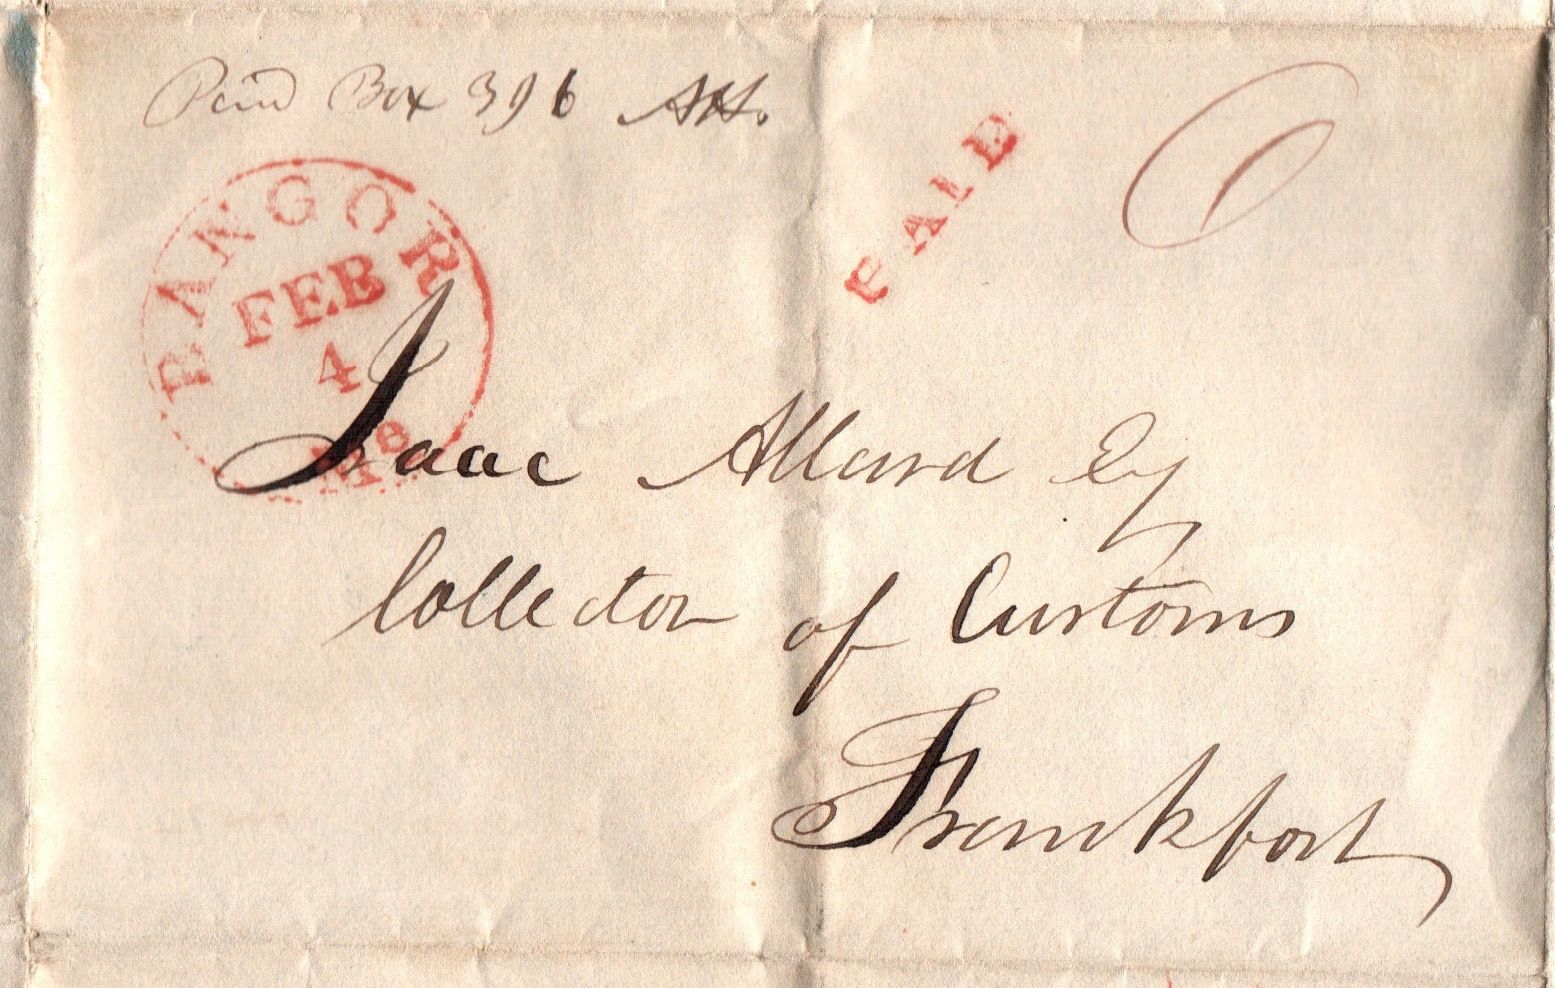 Paid Box 396 AH.
BANGOR
FEB
4
Me
PAID
Isaac Allard Esq
Collector of Customs
Frankfort